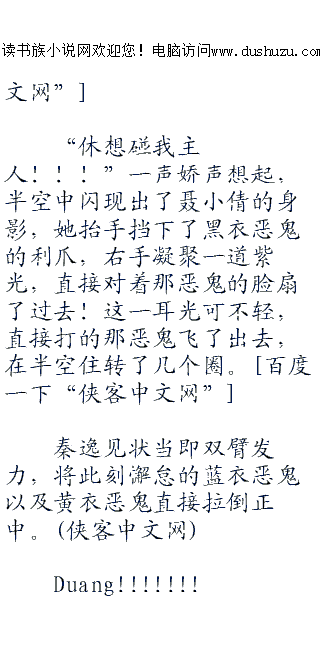 读书族小说网欢迎您！电脑访问www.dushuzu.com
文网”]
“休想碰我主
人！！！”一声娇声想起，
半空中闪现出了聂小倩的身
影，她抬手挡下了黑衣恶鬼
的利爪，右手凝聚一道紫
光，直接对着那恶鬼的脸扇
了过去！这一耳光可不轻，
直接打的那恶鬼飞了出去，
在半空住转了几个圈。[百度
一下“侠客中文网”]
秦逸见状当即双臂发
力，将此刻懈怠的蓝衣恶鬼
以及黄衣恶鬼直接拉倒正
中。(侠客中文网)
Duang!!!!!!!